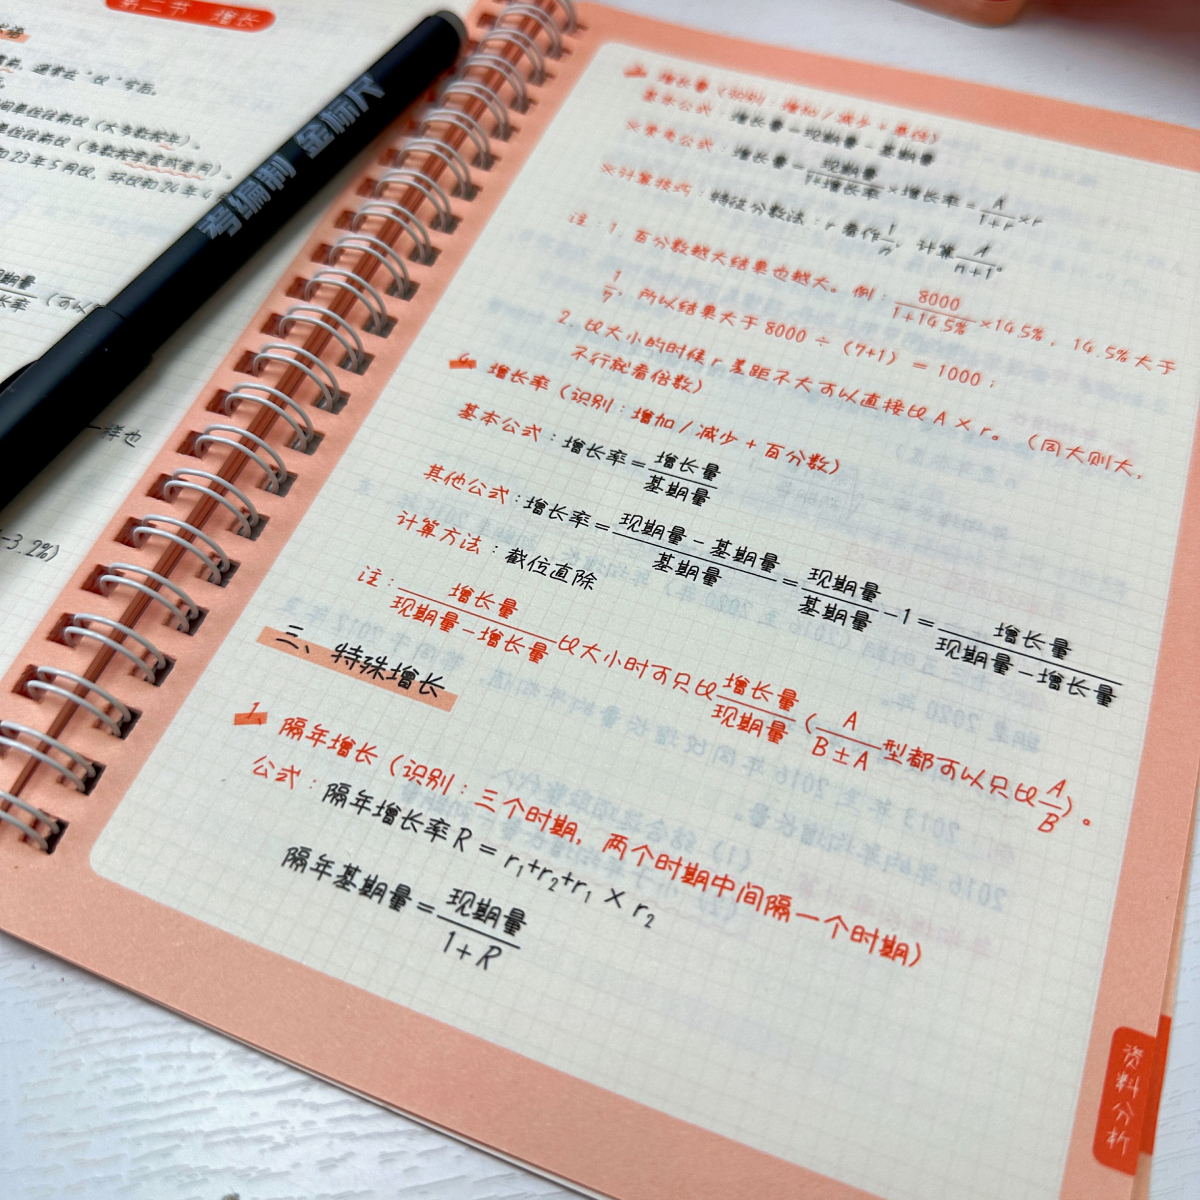 第二节 增长
通常省"仅"号后。
(大多数考生)
23年5月仅,环仅和24年4
现期量
长率 (可以
一样也
-3.2%)
考编制 金标尺
3、增长量(识别:增加/减少+单位)
基本公式:增长量=现期量-基期量
※常考公式:增长量=现期量/1+增长率×增长率=A/1+r×r
※计算技巧:特征分数法:r看作1/n,计算A/n+1。
注:1 百分数越大结果也越大。例:8000/1+14.5%×14.5%,14.5%大于
1/7,所以结果大于8000÷(7+1)=1000;
2.比大小的时候r差距不大可以直接比A×r。(同大则大,
不行就看倍数)
4、增长率(识别:增加/减少+百分数)
基本公式:增长率=增长量/基期量
其他公式:增长率=现期量-基期量/基期量=现期量/基期量-1=增长量/现期量-增长量
计算方法:截位直除
注:增长量/现期量-增长量比大小时可只比增长量/现期量(A/B±A型都可以只比A/B)。
三、特殊增长
1、隔年增长(识别:三个时期,两个时期中间隔一个时期)
公式:隔年增长率R=r₁+r₂+r₁×r₂
隔年基期量=现期量/1+R
资料分析